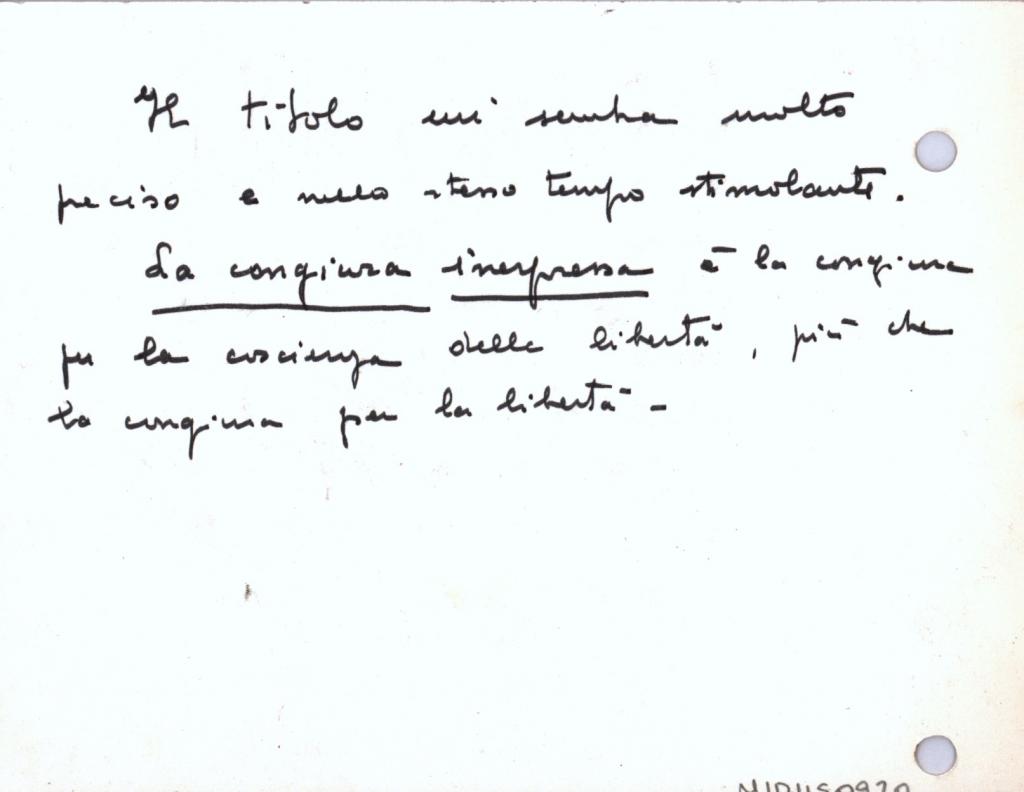 Il titolo mi sembra molto
preciso e nello stesso tempo stimolante.
La congiura inespressa è la congiura
per la coscienza della libertà, più che
la congiura per la libertà -